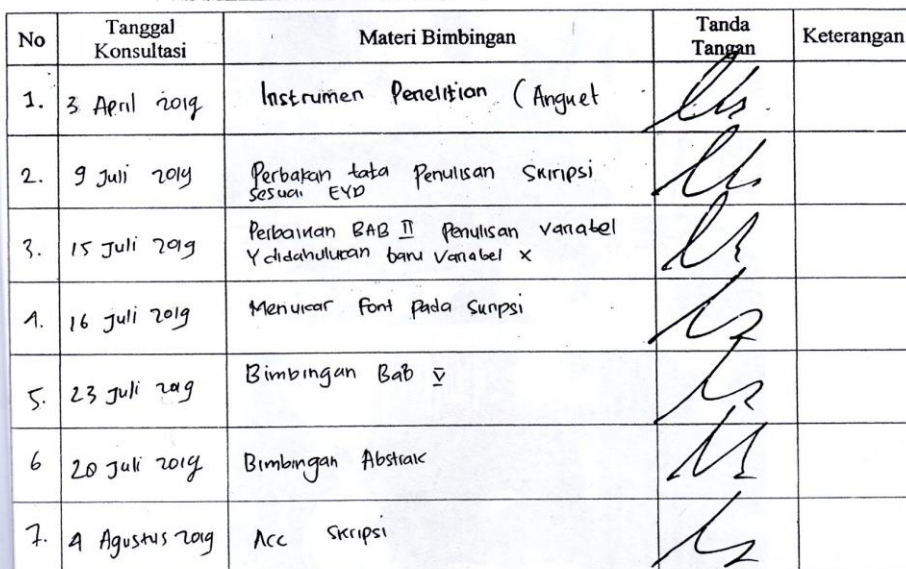 No Tanggal Konsultasi Materi Bimbingan Tanda Tangan Keterangan
1. 3 April 2019 Instrumen Penelitian (Angket
2. 9 Juli 2019 Perbakan tata Penulisan Skripsi
sesuai EYD
3. 15 Juli 2019 Perbaikan BAB II Penulisan variabel
Y didahulukan baru variabel X
4. 16 Juli 2019 Menukar Font pada Skripsi
5. 23 Juli 2019 Bimbingan Bab V
6 Juli 2019 Bimbingan Abstrak
7. 4 Agustus 2019 Acc Skripsi